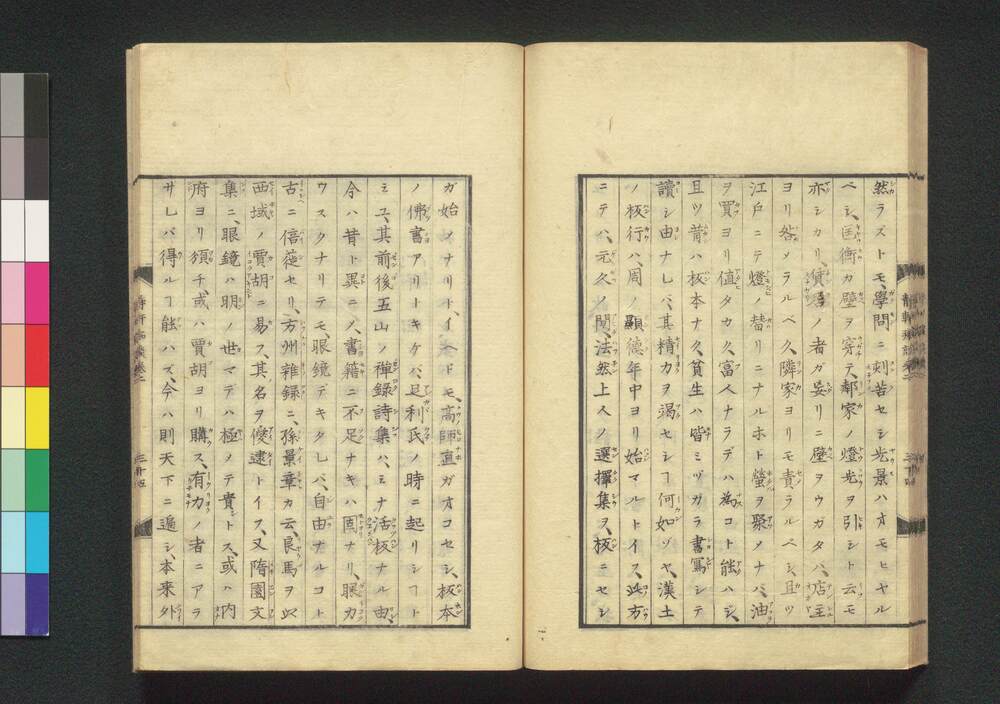 然ラズトモ、學問ニ刺苦セシ光景ハオモヒヤル
ベシ、匡衡カ壁ヲ穿テ、鄰家ノ燈光ヲ引シト云モ
亦シカリ、賃居ノ者ガ妄リニ壁ヲウガタバ、店主
ヨリ咎メラルベク、隣家ヨリモ責ラルベシ、且ツ
江戸ニテ燈ノ替リニナルホト螢ヲ聚メナバ、油
ヲ買ヨリ値タカク、富人ナラデハ為コト能ハジ、
且ツ昔ハ板本ナク、貧生ハ皆ミヅカラ書寫シテ
讀シ由ナレバ、其精力ヲ竭セシヿ何如ゾヤ、漢土
ノ板行ハ、周ノ顯德年中ヨリ始マルトイス、此方
ニテハ、元久ノ間、法然上人ノ選擇集ヲ、板ニセシ
ガ始メナリト、イヘドモ、高師直ガオコセシ、板本
ノ佛書アリトキケバ、足利氏ノ時ニ起リシヿト
ミユ、其前後五山ノ禅録詩集ハ、ミナ活板ナル由、
今ハ昔ト異ニノ、書籍ニ不足ナキハ固ナリ、眼力
ウスクナリテモ、眼鏡デキタレバ、自由ナルコト
古ニ倍蓰セリ、方州雜録ニ、孫景章カ云、良馬ヲ以
西域ノ賈胡ニ易フ、其名ヲ優逮トイス、又隋園文
集ニ、眼鏡ハ明ノ世マデハ極メテ貴シトス、或ハ内
府ヨリ頒チ、或ハ賈胡ヨリ購ス、有力ノ者ニアラ
サレバ得ルヿ能ハズ、今ハ則天下ニ遍シ、本来外